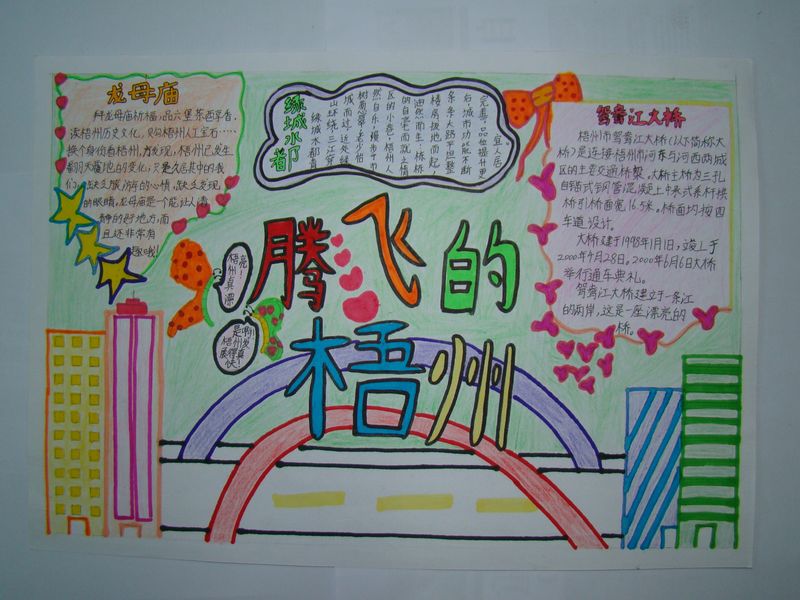 龙母庙
拜龙母庙祈福,品六堡茶
读梧州历史文化,梧州人工宝石……
换个身份看梧州,方发现,梧州已发生
翻天覆地的变化,只是久居其中的我
们,缺乏旅游的心情,缺乏发现
的眼睛,龙母庙是一个能让人清
静的好地方,而
且还非常有
趣哦!
绿城水都
绿城水都,青
山环绕,三江穿
城而过,近处绿
树葱笼,老少怡
然自乐漫步于市
区的小巷,梧州人
的自豪之情
油然而生,一栋栋
楼房拔地而起
条条大路平坦整
后,城市功能不断
完善,品位提升更
宜人居
鸳鸯江大桥
梧州市鸳鸯江大桥(以下简称大
桥)是连接梧州市河东与河西两城
区的主要交通桥梁。大桥主桥为三孔
自锚式钢管混凝土中承式系杆拱
桥,引桥面宽16.5米。桥面均按四
车道设计。
大桥建于1998年1月1日,竣工于
2000年4月28日。2000年6月6日大桥
举行通车典礼。
鸳鸯江大桥建立于一条江
的两岸,这是一座漂亮的
桥。
腾飞的
梧州
梧州真漂亮!
是啊!梧州发展得真快!